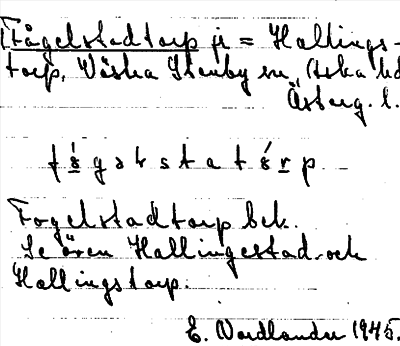 Fågelstadtorp jr = Hallings-
torp, Västra Stenby sn, Aska hd
Österg. l.
fǻgəlstatǻrp
Fogelstadtorp bek.
Se även Hallingestad och
Hallingstorp.
E. Nordlander 1945.